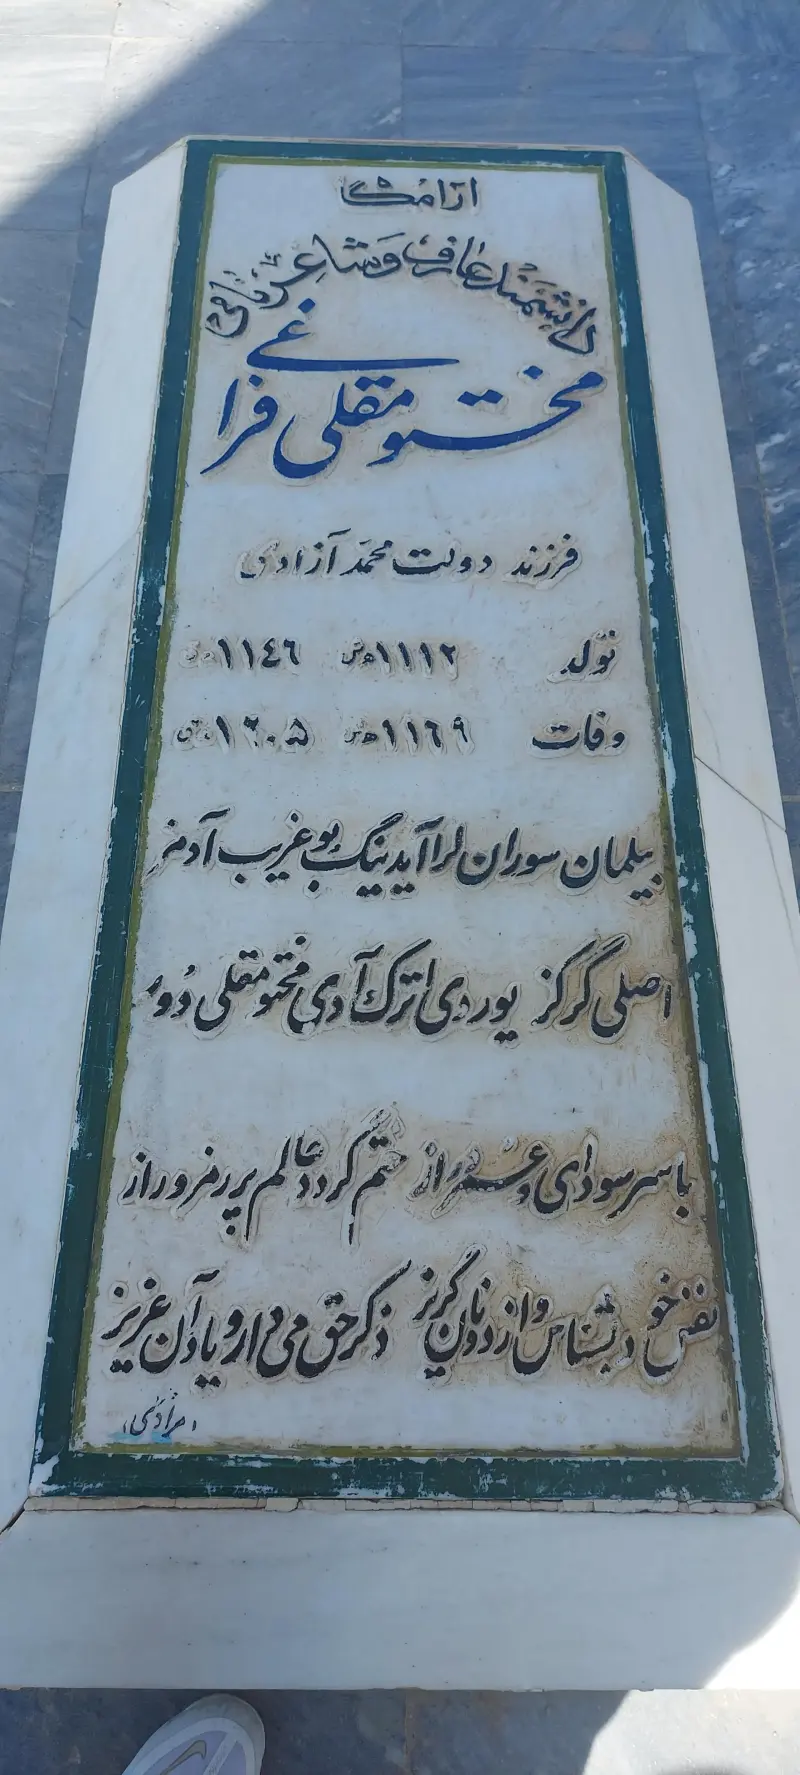 آرامگاه
دانشمند عارف و شاعر نامی
مختومقلی فراغی
فرزند دولت محمد آزادی
تولد ۱۱۱۲ ه‍ش ۱۱٤٦ ه‍ق
وفات ۱۱٦۹ ه‍ش ۱۲۰۵ ه‍ق
بیلمان سوران لرا آیدینگ بو غریب آدمز
اصلی گرگز یوردی اترک آدی مختومقلی دور
با سر سودای و عمر دراز ختم گردد عالم پر رمز و راز
نفس خود بشناس و از دونان گریز ذکر حق می دار و یاد آن عزیز